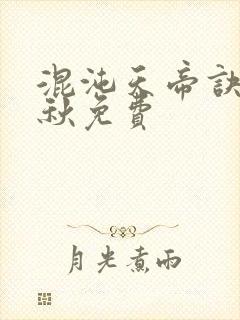 混沌天帝訣
秋免費
月光煮雨